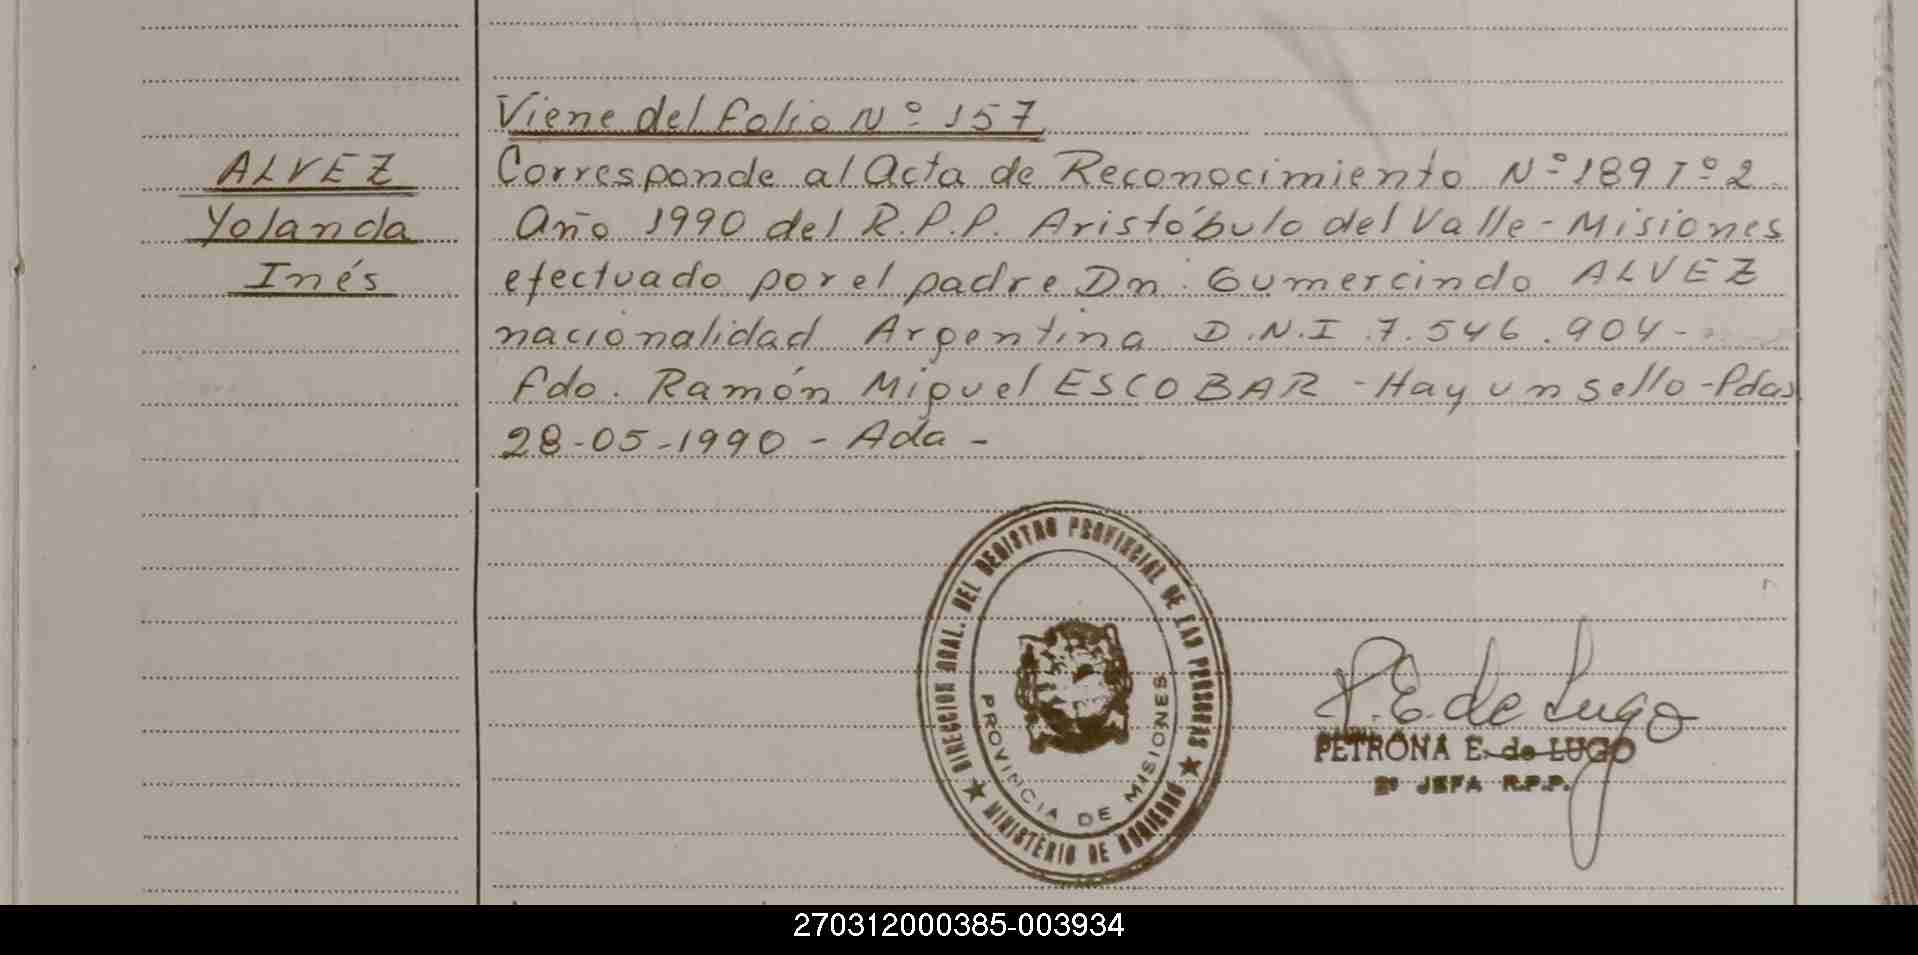 Viene del Folio Nº 157
ALVEZ
Yolanda
Inés
Corresponde al Acta de Reconocimiento Nº 189 Tº 2
Año 1990 del R.P.P. Aristóbulo del Valle - Misiones
efectuado por el padre Dn. Gumercindo ALVEZ
nacionalidad Argentina D.N.I. 7.546.904-
Fdo. Ramón Miguel ESCOBAR - Hay un sello - Pdas
28-05-1990 - Ada -
DIRECCION GRAL. DEL REGISTRO PROVINCIAL DE LAS PERSONAS
★ MINISTERIO DE GOBIERNO ★
PROVINCIA DE MISIONES
P.E. de Lugo
PETRONA E. de LUGO
2º JEFA R.P.P.
270312000385-003934